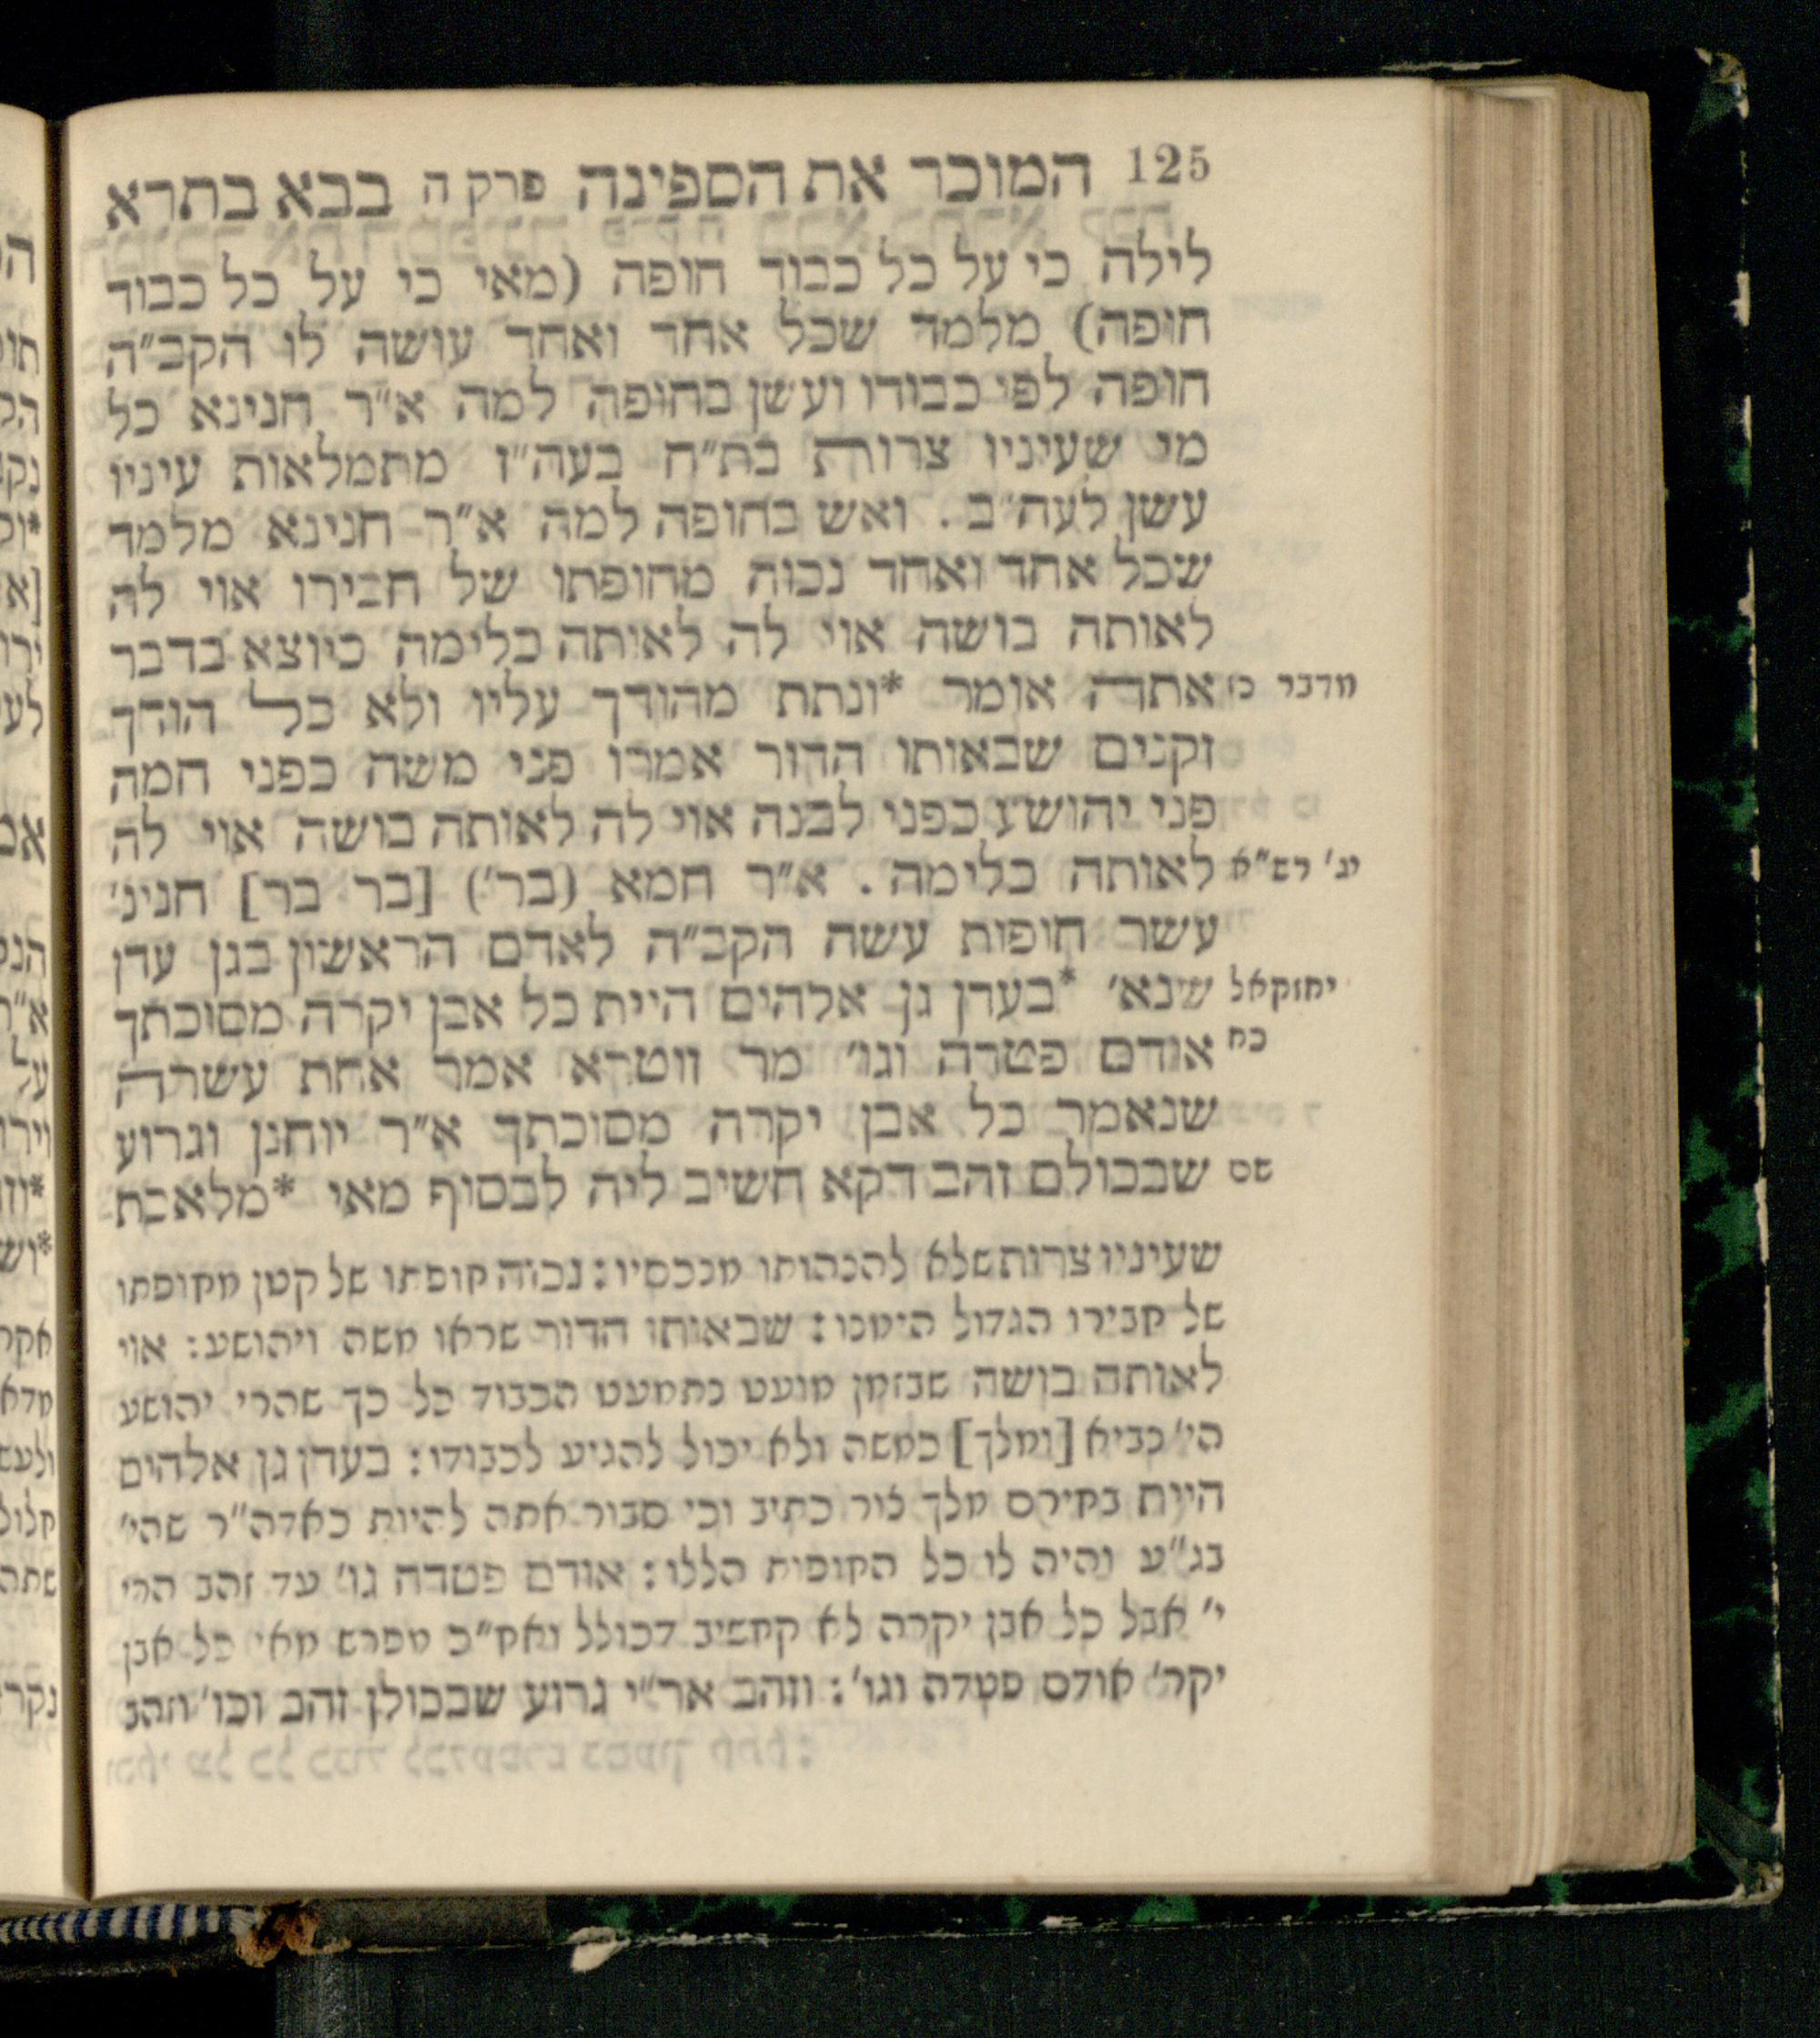 125 המוכר את הספינה פרק ה בבא בתרא
לילה כי על כל כבוד חופה (מאי כי על כל כבוד
חופה) מלמד שכל אחד ואחד עושה לו הקב״ה
חופה לפי כבודו ועשן בחופה למה א״ר חנינא כל
מי שעיניו צרות בת״ח בעה״ז מתמלאות עיניו
עשן לעה״ב. ואש בחופה למה א״ר חנינא מלמד
שכל אחד ואחד נכוה מחופתו של חבירו אוי לה
לאותה בושה אוי לה לאותה כלימה כיוצא בדבר
מדבר כז אתה אומר *ונתת מהודך עליו ולא כל הודך
זקנים שבאותו הדור אמרו פני משה כפני חמה
פני יהושע כפני לבנה אוי לה לאותה בושה אוי לה
לאותה כלימה. א״ר חמא (בר׳) [בר בר] חנינ׳
עשר חופות עשה הקב״ה לאדם הראשון בגן עדן
יחזקאל שנא׳ *בעדן גן אלהים היית כל אבן יקרה מסוכתך
כח אודם פטדה וגו׳ מר זוטרא אמר אחת עשרה
שנאמר כל אבן יקרה מסוכתך א״ר יוחנן וגרוע
שם שבכולם זהב דקא חשיב ליה לבסוף מאי *מלאכת
שעיניו צרות שלא להנהותו מנכסיו: נכוה חופתו של קטן מחופתו
של חבירו הגדול הימנו: שבאותו הדור שראו משה ויהושע: אוי
לאותה בושה שבזמן מועט נתמעט הכבוד כל כך שהרי יהושע
הי׳ נביא [ומלך] כמשה ולא יכול להגיע לכבודו: בעדן גן אלהים
היית בחירם מלך צור כתיב וכי סבור אתה להיות כאדה״ר שהי׳
בג״ע והיה לו כל החופות הללו: אודם פטדה גו׳ עד זהב הרי
י׳ אבל כל אבן יקרה לא קחשיב דכולל ואח״כ מפרש מאי כל אבן
יקר׳ אודם פטדה וגו׳: וזהב אר״י גרוע שבכולן זהב וכו׳ וזהב